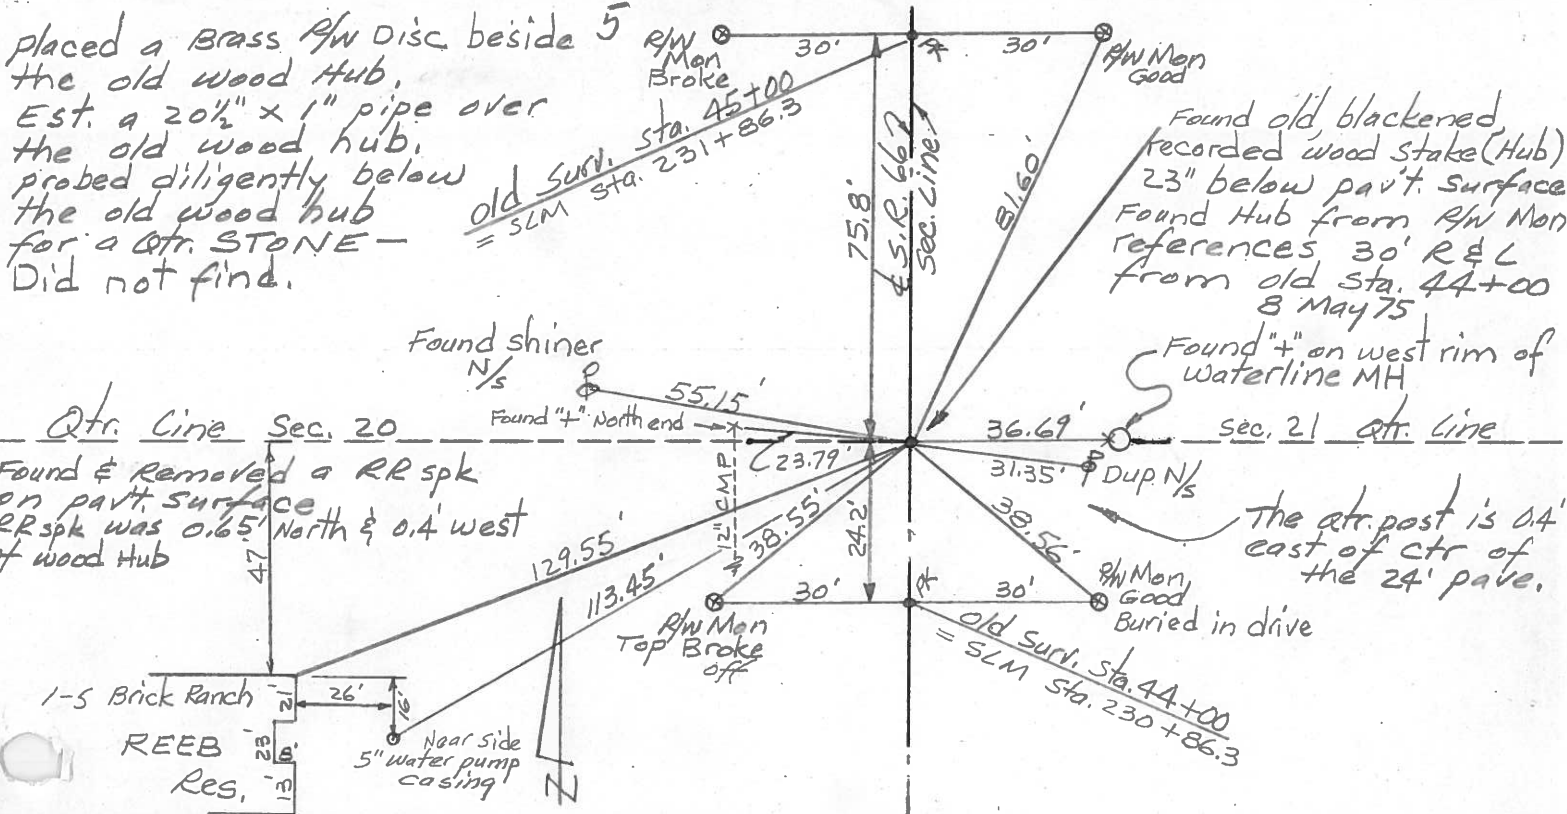 5
placed a Brass R/W Disc beside
the old wood Hub.
Est. a 20½" x 1" pipe over
the old wood hub.
probed diligently below
the old wood hub
for a Qtr. STONE —
Did not find.
R/W
Mon
Broke
30'
30'
R/W Mon
Good
old Surv. Sta. 45+00
= SLM Sta. 231+86.3
75.8'
℄ S.R. 667
Sec. Line
81.60'
Found old, blackened,
recorded wood Stake (Hub)
23" below pav't. Surface
Found Hub from R/W Mon
references 30' R & L
from old Sta. 44+00
8 May 75
Found shiner
N/s
55.15'
Found "+" North end
Found "+" on west rim of
Waterline MH
Qtr. Line Sec. 20
23.79'
36.69'
Sec. 21 Qtr. Line
31.35'
Dup. N/s
Found & Removed a RR spk
on pav't. Surface
RR spk was 0.65' North & 0.4' west
of wood Hub
47'
12" CMP
129.55'
113.45'
38.55'
24.2'
38.56'
The qtr. post is 0.4'
east of ctr of
the 24' pave.
30'
30'
R/W Mon
Top Broke
off
R/W Mon
Good
Buried in drive
old Surv. Sta. 44+00
= SLM Sta. 230+86.3
1-S Brick Ranch
21'
26'
16'
REEB
23'
8'
Res.
13'
Near side
5" water pump
casing
N